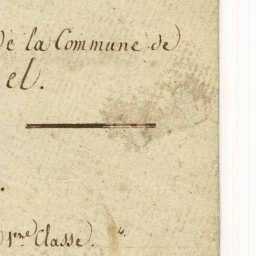 de la Commune de
el.
.
1ere Classe.